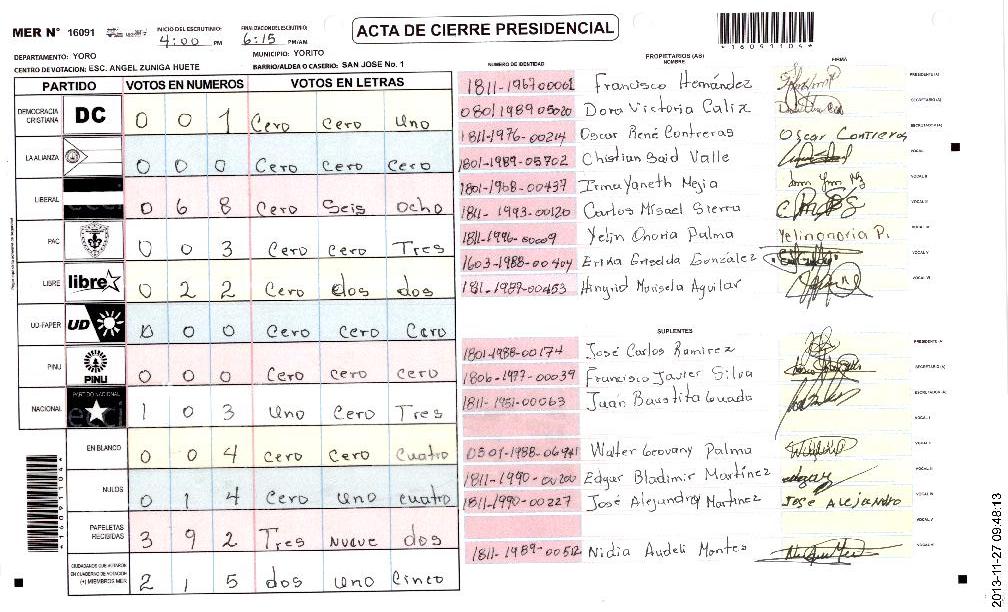 MER N° 16091
INICIO DEL ESCRUTINIO: 4:00 PM
FINALIZACION DEL ESCRUTINIO: 6:15 PM/AM
ACTA DE CIERRE PRESIDENCIAL
*16091104*
DEPARTAMENTO: YORO
MUNICIPIO: YORITO
CENTRO DE VOTACION: ESC. ANGEL ZUNIGA HUETE
BARRIO/ALDEA O CASERIO: SAN JOSE No. 1
PARTIDO VOTOS EN NUMEROS VOTOS EN LETRAS
DEMOCRACIA CRISTIANA DC 0 0 1 Cero Cero Uno
LA ALIANZA 0 0 0 Cero Cero Cero
LIBERAL 0 6 8 Cero Seis Ocho
PAC 0 0 3 Cero Cero Tres
LIBRE libre 0 2 2 Cero dos dos
UD-FAPER UD 0 0 0 Cero Cero Cero
PINU PINU 0 0 0 Cero Cero Cero
NACIONAL PARTIDO NACIONAL 1 0 3 Uno Cero Tres
EN BLANCO 0 0 4 Cero Cero Cuatro
NULOS 0 1 4 Cero Uno Cuatro
PAPELETAS RECIBIDAS 3 9 2 Tres Nueve dos
CIUDADANOS QUE VOTARON EN CUADERNO DE VOTACION (+) MIEMBROS MER 2 1 5 dos Uno Cinco
*16091104*
NUMERO DE IDENTIDAD PROPIETARIOS (AS) NOMBRE FIRMA
1811-1967 00061 Francisco Hernández PRESIDENTE (A)
0801 1989 05020 Dora Victoria Calix SECRETARIO (A)
1811-1976-00214 Oscar René Contreras Oscar Contreras ESCRUTADOR (A)
1801-1989-05702 Christian Said Valle VOCAL I
1801-1968-00437 Irma Yaneth Mejia VOCAL II
1811-1993-00120 Carlos Misael Sierra VOCAL III
1811-1996-00009 Yelin Onoria Palma Yelinonoria P. VOCAL IV
1603-1988-00404 Erika Griselda González VOCAL V
181-1987-00453 Hingrid Marisela Aguilar VOCAL VI
SUPLENTES
1801-1988-00174 José Carlos Ramirez PRESIDENTE (A)
1806-1977-00039 Francisco Javier Silva SECRETARIO (A)
1811-1951-00063 Juán Bautista ESCRUTADOR (A)
VOCAL I
0501-1988-06941 Walter Geovany Palma VOCAL II
1811-1990-00200 Edgar Bladimir Martínez VOCAL III
1811-1990-00227 José Alejandro Martinez José Alejandro VOCAL IV
VOCAL V
1811-1989-00512 Nidia Audeli Montes VOCAL VI
2013-11-27 09:48:13